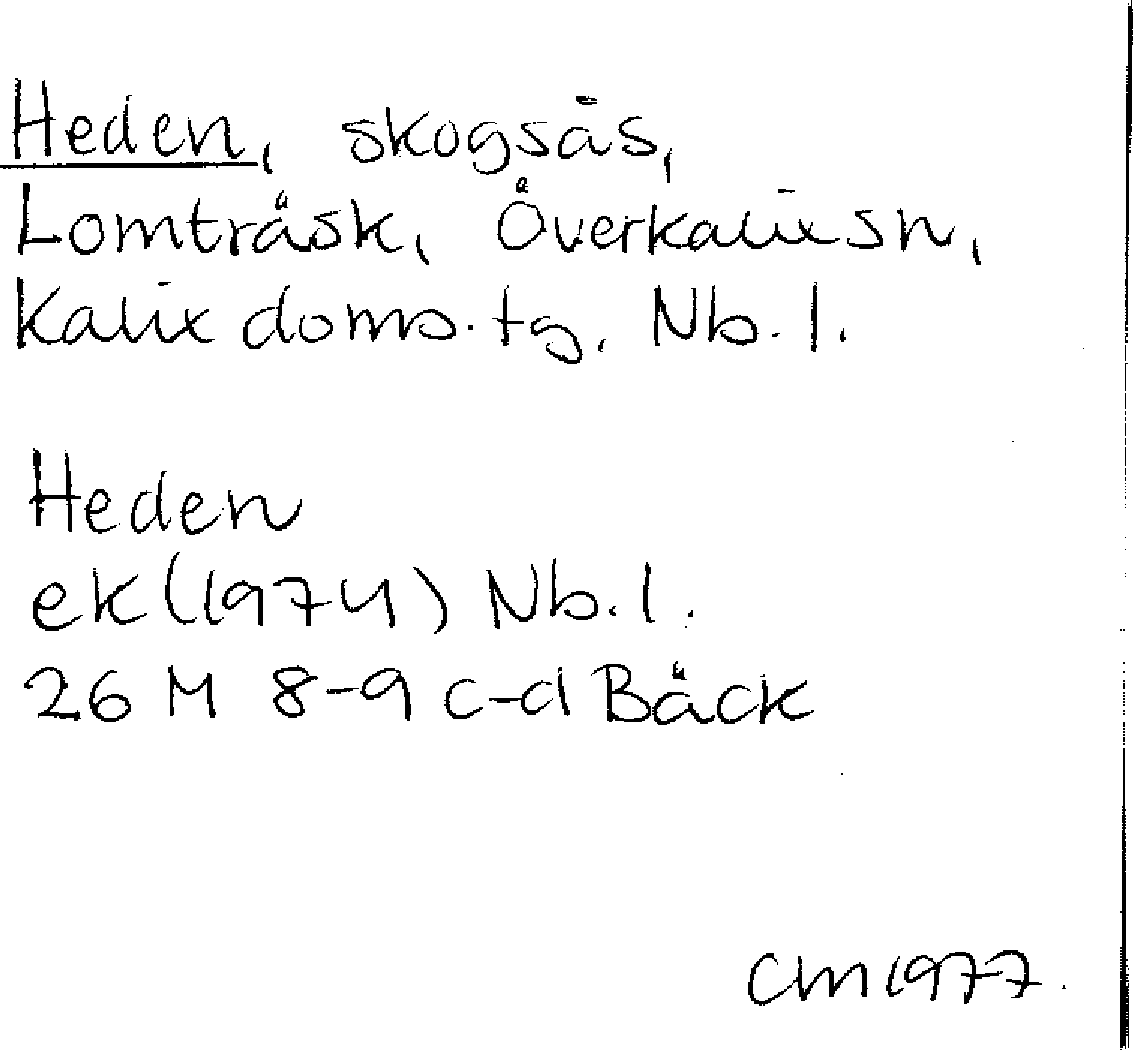 Heden, skogsås,
Lomträsk, Överkalix sn,
Kalix doms. tg. Nb. l.
Heden
ek (1974) Nb. l.
26 M 8-9 c-d Bäck
CM 1977.